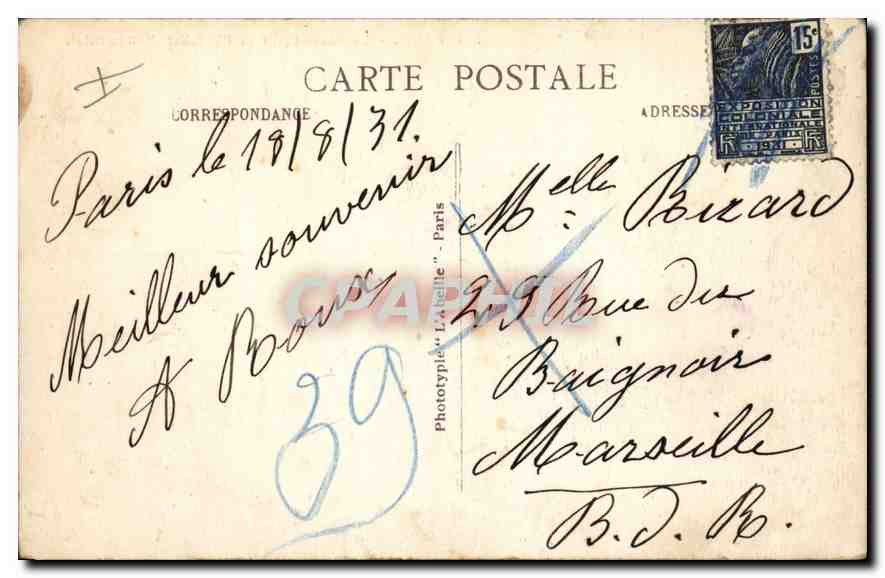 CARTE POSTALE
CORRESPONDANCE
ADRESSE
15c
POSTES
EXPOSITION
COLONIALE
INTERNATIONALE
PARIS
1931
RF
Paris le 18/8/31.
Meilleur souvenir
A Roux
39
Phototypie "L'Abeille" - Paris
CPAPHIL
Melle Bizard
29 Rue du
Baignoir
Marseille
B. d. R.